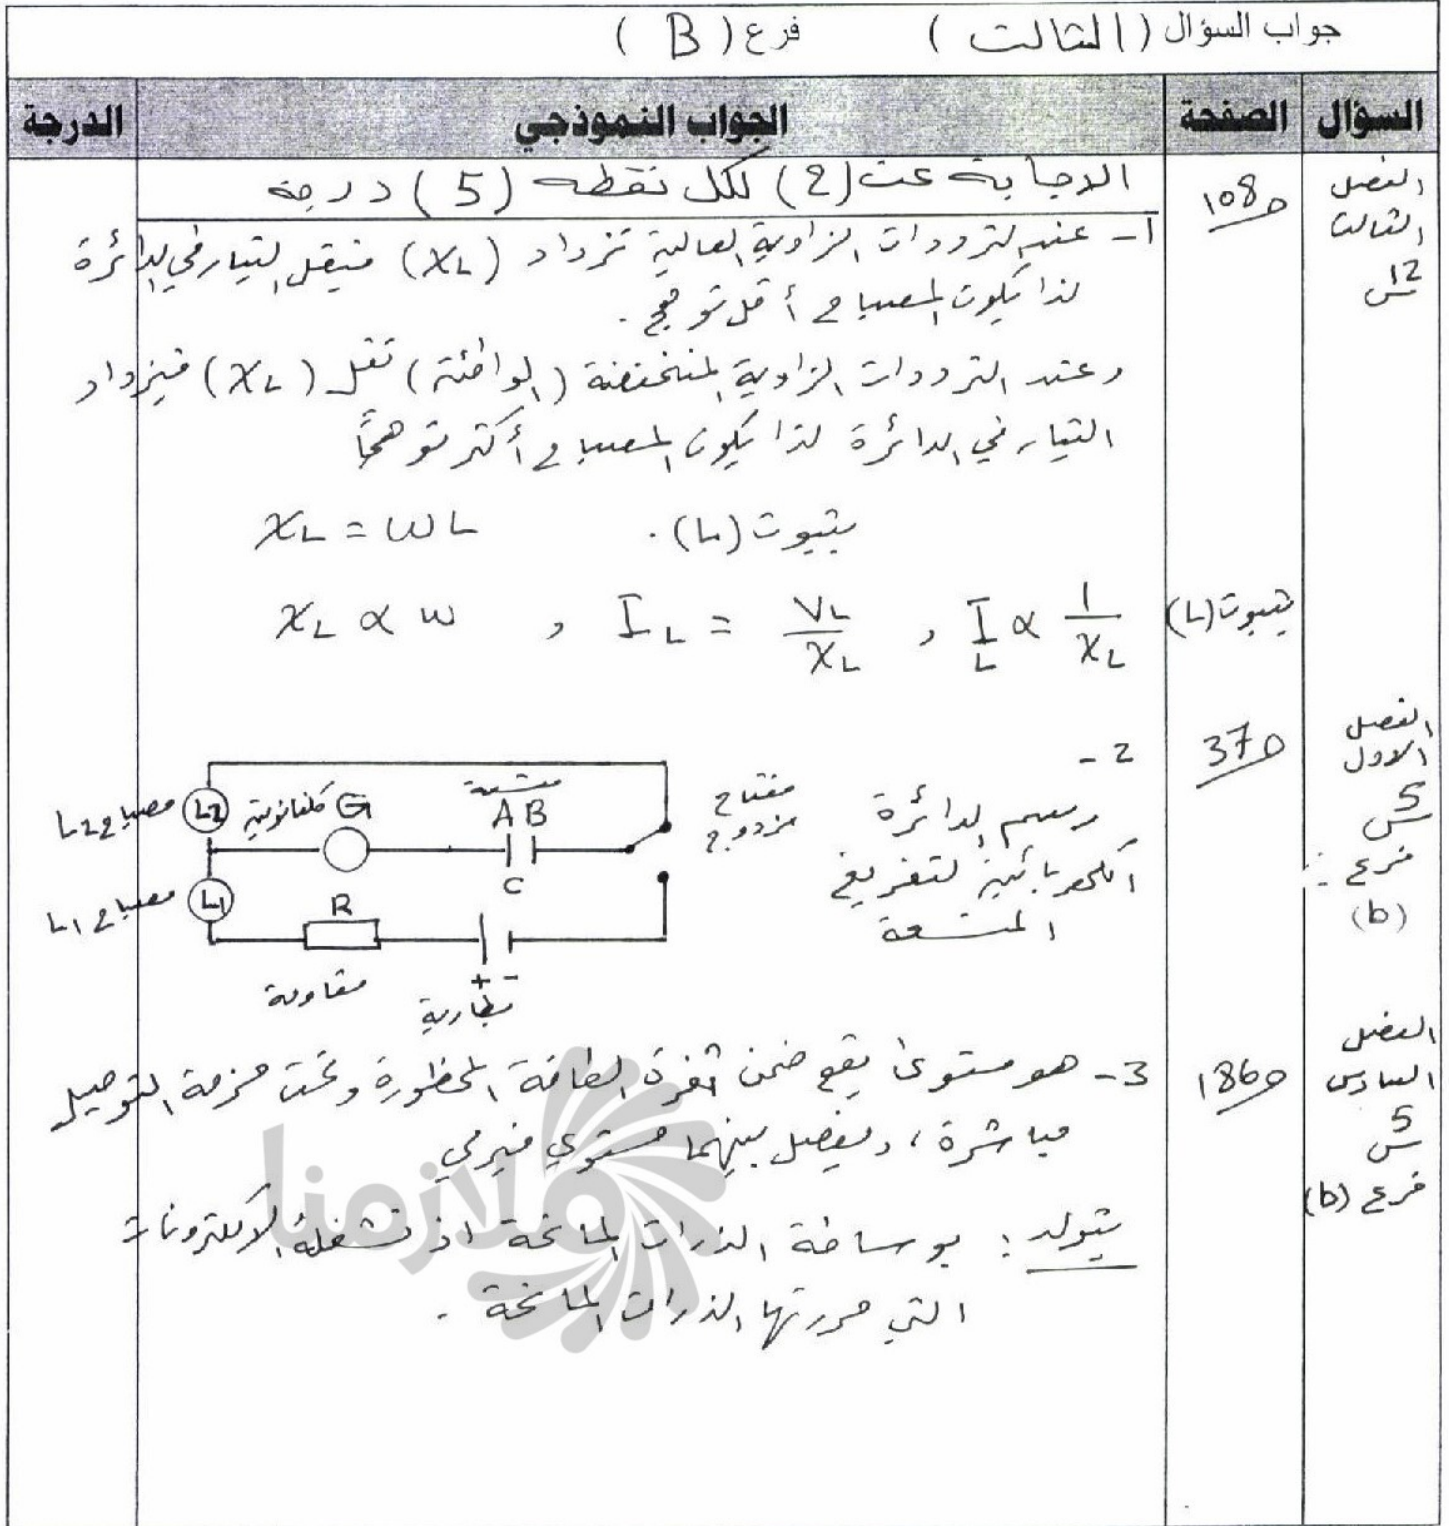 جواب السؤال (الثالث) فرع (B)
السؤال الصفحة الجواب النموذجي الدرجة
الاجابة عن (2) لكل نقطه (5) درجة
الفصل الثالث س12
ص108
1- عند الترددات الزاوية العالية تزداد (XL) فيقل التيار في الدائرة
لذا يكون المصباح أقل توهج .
وعند الترددات الزاوية المنخفضة (الواطئة) تقل (XL) فيزداد
التيار في الدائرة لذا يكون المصباح أكثر توهجاً
بثبوت (L). XL = ωL
بثبوت (L)
I_L ∝ 1/XL , I_L = VL/XL , XL ∝ ω
الفصل الاول س5 فرع (b)
ص37
2-
رسم الدائرة
الكهربائية لتفريغ
المتسعة
مفتاح مزدوج
متسعة
A B
C
G كلفانوميتر
L2 مصباح L2
L1 مصباح L1
R
مقاومة
+ -
بطارية
الفصل السادس س5 فرع (b)
ص186
3- هو مستوى يقع ضمن ثغرة الطاقة المحظورة وتحت حزمة التوصيل
مباشرة ، ويفصل بينهما مستوي فيرمي
يتولد : بوساطة الذرات المانحة اذ تشغله الالكترونات
التي حررتها الذرات المانحة .
ملازمنا